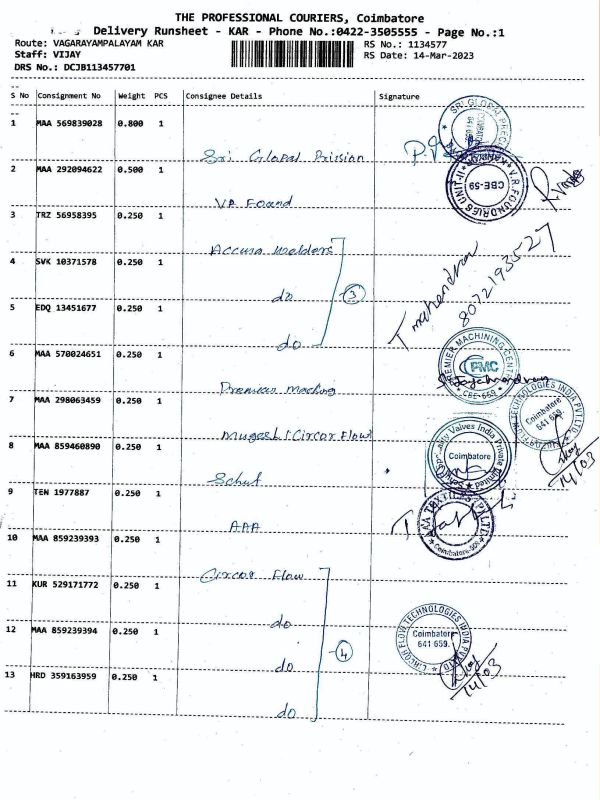 THE PROFESSIONAL COURIERS, Coimbatore
Delivery Runsheet - KAR - Phone No.:0422-3505555 - Page No.:1
Route: VAGARAYAMPALAYAM KAR
RS No.: 1134577
Staff: VIJAY
RS Date: 14-Mar-2023
DRS No.: DCJB113457701
S No Consignment No Weight PCS Consignee Details Signature
1 MAA 569839028 0.800 1
Sri Global Prission
SRI GLOBAL PREC
2 MAA 292094622 0.500 1
VR Found
V.R.FOUNDRIES UNIT-II
CBE-59
3 TRZ 56958395 0.250 1
Accura Welders
4 SVK 10371578 0.250 1
do
3
T mahendran
8072193527
5 EDQ 13451677 0.250 1
do
6 MAA 570024651 0.250 1
Premear Maching
PREMIER MACHINING CENTRE
PMC
CBE-659
7 MAA 298063459 0.250 1
Mugesh (Circor Flow)
CIRCOR FLOW TECHNOLOGIES INDIA PVT.LTD
Coimbatore
641 659
14/03
8 MAA 859460890 0.250 1
Schuf
Valves India Private Limited
Coimbatore
9 TEN 1977887 0.250 1
AAA
AAA TEXTILES (P) LTD
Coimbatore-659
10 MAA 859239393 0.250 1
Circor Flow
11 KUR 529171772 0.250 1
do
12 MAA 859239394 0.250 1
do
4
CIRCOR FLOW TECHNOLOGIES INDIA PVT.LTD
Coimbatore
641 659.
14/03
13 HRD 359163959 0.250 1
do